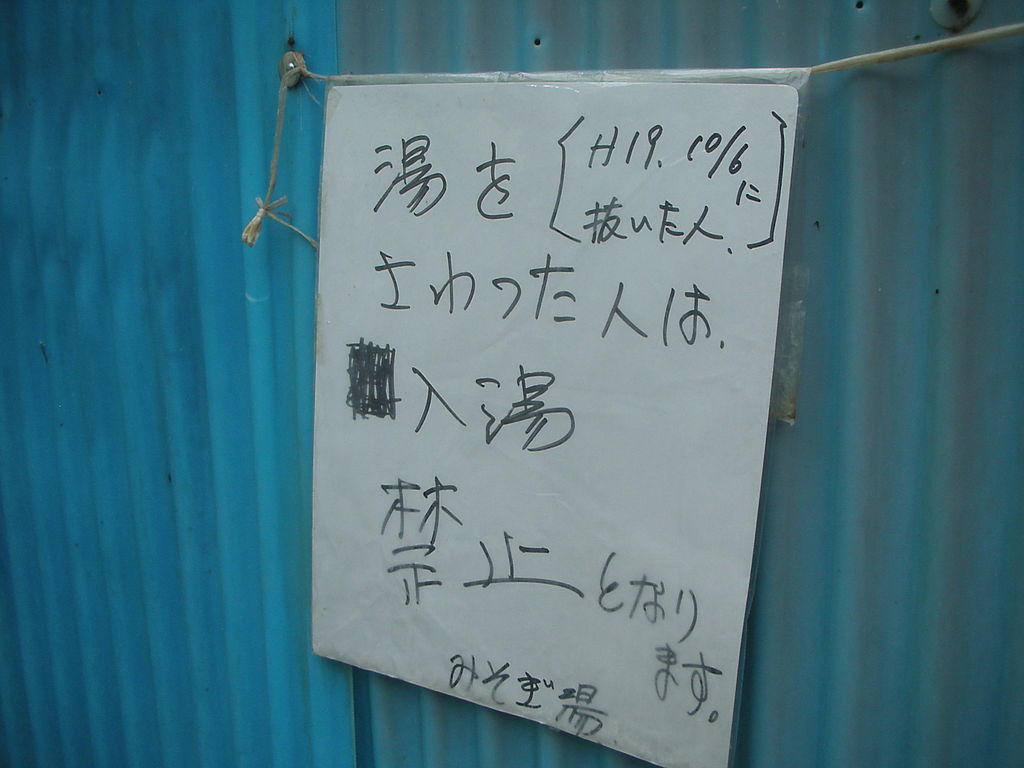 湯を
(H19. 10/6に
抜いた人.)
さわった人は.
入湯
禁止となり
ます。
みそぎ湯